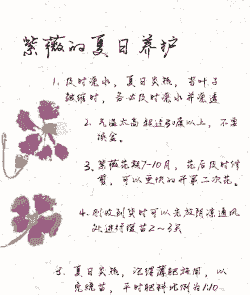 紫薇的夏日养护
1、及时浇水，夏日炎热，当叶子
缩时，务必及时浇水并浇透
2、气温太高 超过30度以上，不要
施金。
3、紫薇花期7-10月，花后及时修
剪，可以更快的开第二次花。
4、刚收到货时可以先放阴凉通风
处进行缓苗2～3天
3. 夏日炎热，记得薄肥施用，以
免烧苗，平时肥料比例为1:10